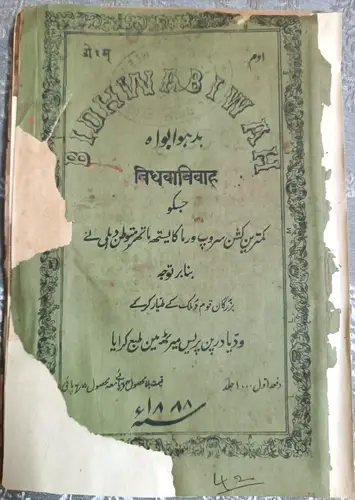 ओ३म्
اوم
BIDHWABIWAH
بدہوا بواہ
विधवाविवाह
جسکو
کمترین کشن سروپ ورما کایستھ ماتھر متوطن دہلی نے
بنابر توجہ
بزرگان قوم و ملک کے طیار کرکے
ودیا درپن پریس میرٹھ مین طبع کرایا
دفعہ اول ۱۰۰۰ جلد
قیمت بلا محصول
سنہ ۱۸۸۸ء
42